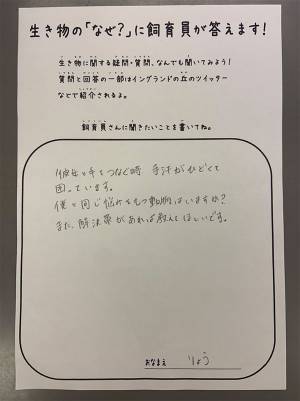 生き物の「なぜ?」に飼育員が答えます!
生き物に関する疑問・質問、なんでも聞いてみよう!
質問と回答の一部はイングランドの丘のツイッター
などで紹介されるよ。
飼育員さんに聞きたいことを書いてね。
彼女と手をつなぐ時 手汗がひどくて
困っています。
僕と同じ悩みをもつ動物はいますか?
また、解決策があれば教えてほしいです。
おなまえ りょう